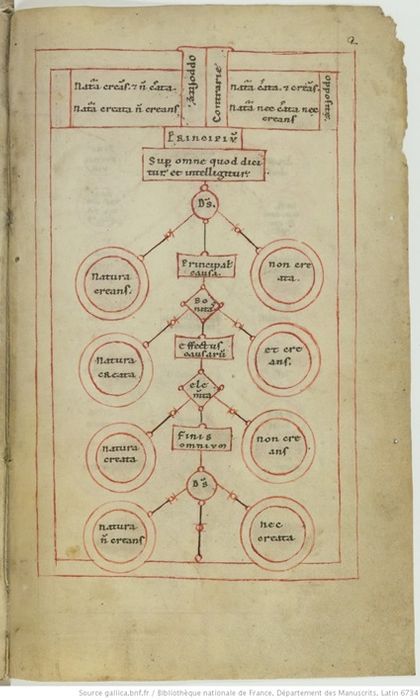 2
Natā creās. & ñ c̄ata.
Natā creata ñ creans
oppositæ.
Contrarie
Natā c̄ata. & creās.
Natā nec c̄ata nec
creans
opposite
PRINCIPIŪ
Sup omne quod dici
tur et intelligitur
D̄s.
Natura
creans.
Principal
causa.
non cre
ata.
Bo
nitas
natura
creata
effectus
causarū
et cre
ans.
ele
m̄ta
natura
creata
finis
omnium
non cre
ans
D̄s
natura
ñ creans
nec
creata
Source gallica.bnf.fr / Bibliothèque nationale de France. Département des Manuscrits. Latin 6734